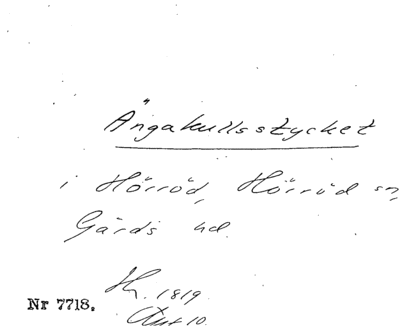 Ängakullsstycket
i Hörröd, Hörröd sn,
Gärds hd.
1819
Nr 7718.
10.